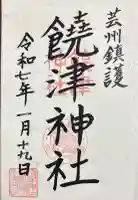 芸州鎮護
饒津神社
令和七年一月十九日